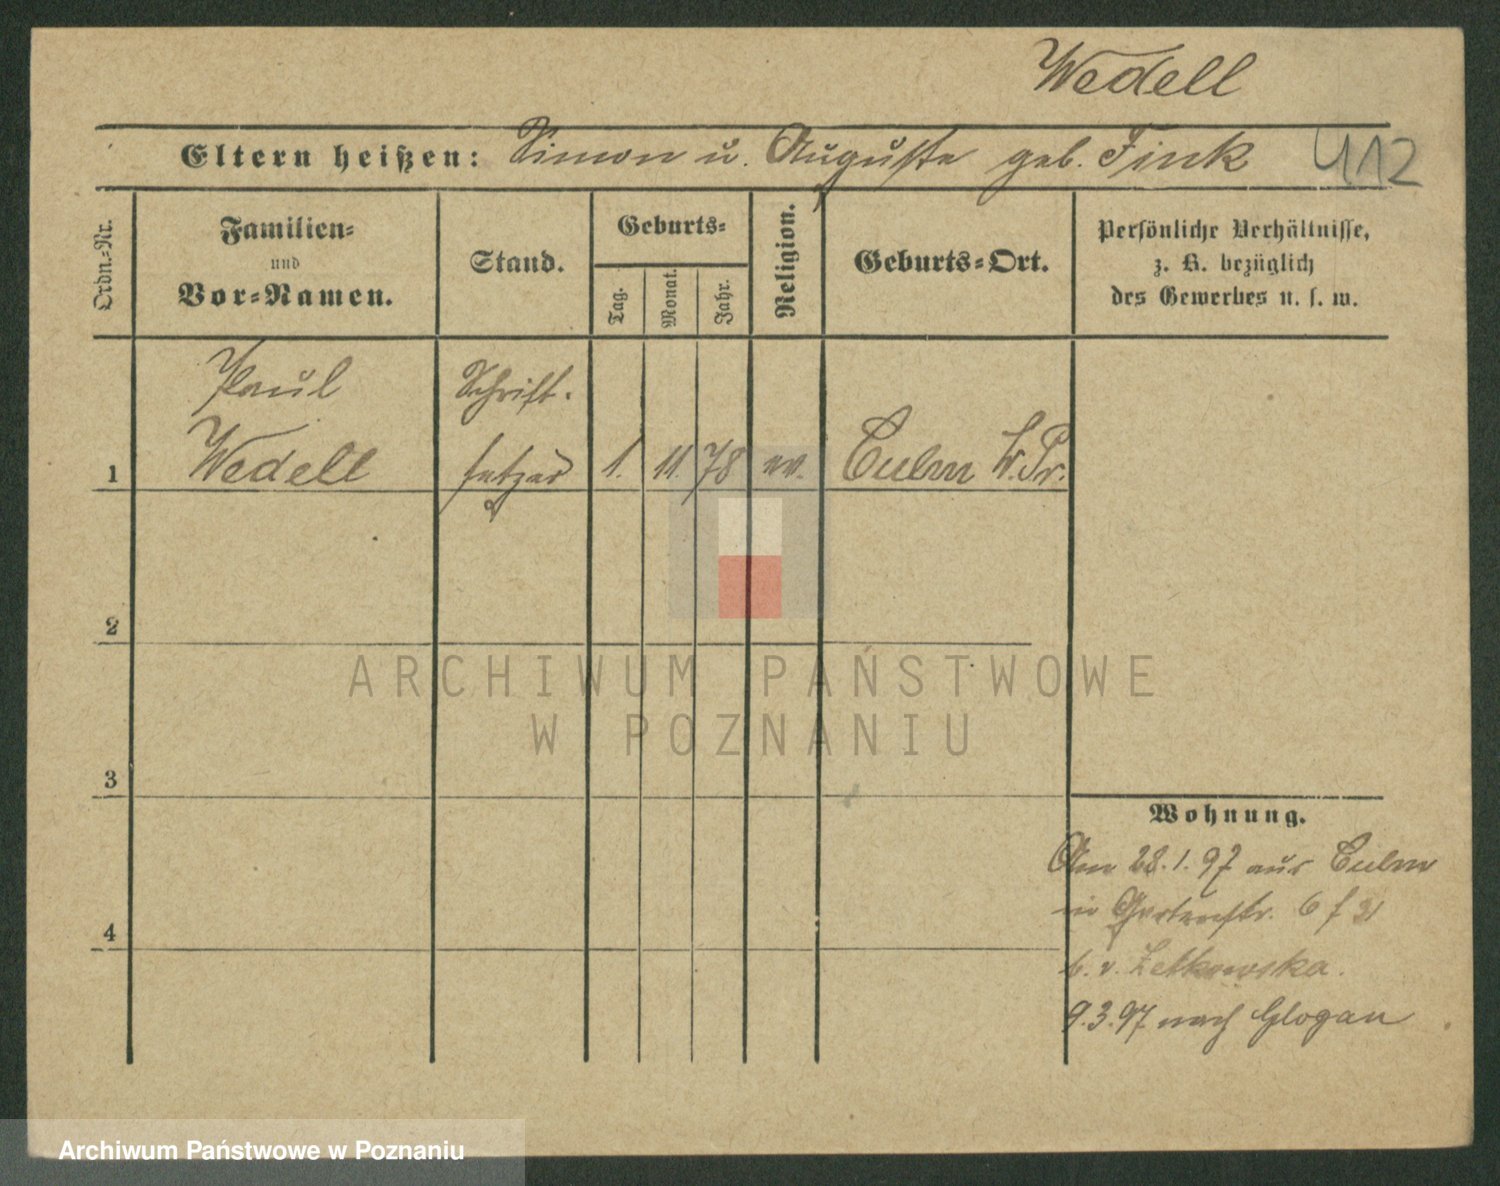 Wedell
Eltern heißen: Simon u. Auguste geb. Fink 412
Ordn.-Nr.
Familien-
und
Vor-Namen.
Stand.
Geburts-
Tag.
Monat.
Jahr.
Religion.
Geburts-Ort.
Persönliche Verhältnisse,
z. B. bezüglich
des Gewerbes u. s. w.
Paul Schrift-
1 Wedell setzer 1. 11. 78 ev. Culm W.Pr.
2
ARCHIWUM PAŃSTWOWE
W POZNANIU
3
Wohnung.
Am 28.1.97 aus Culm
in Gartenstr. 6
4
b. v. Zelkowska.
9.3.97 nach Glogau
Archiwum Państwowe w Poznaniu